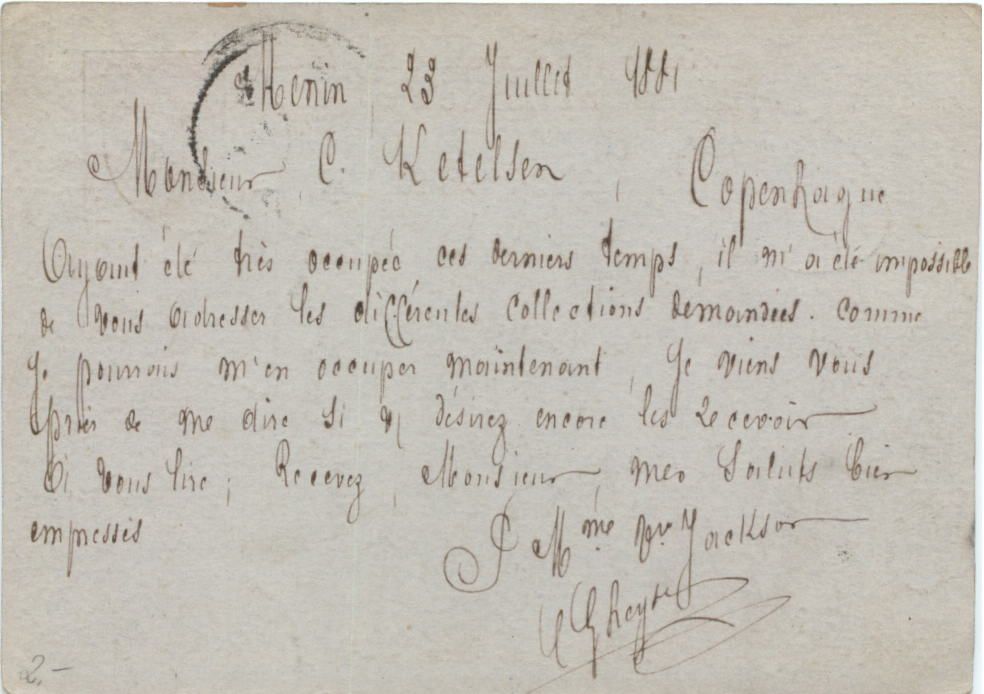 Menin 23 Juillet 1881
Monsieur C. Ketelsen, Copenhague
Ayant été très occupée ces derniers temps, il m'a été impossible
de vous adresser les différentes collections demandées. Comme
je pourrais m'en occuper maintenant, je viens vous
prier de me dire si v désirez encore les recevoir
A vous lire, Recevez, Monsieur, mes Saluts bien
empressés
P Mme Vve Jackson
2,-